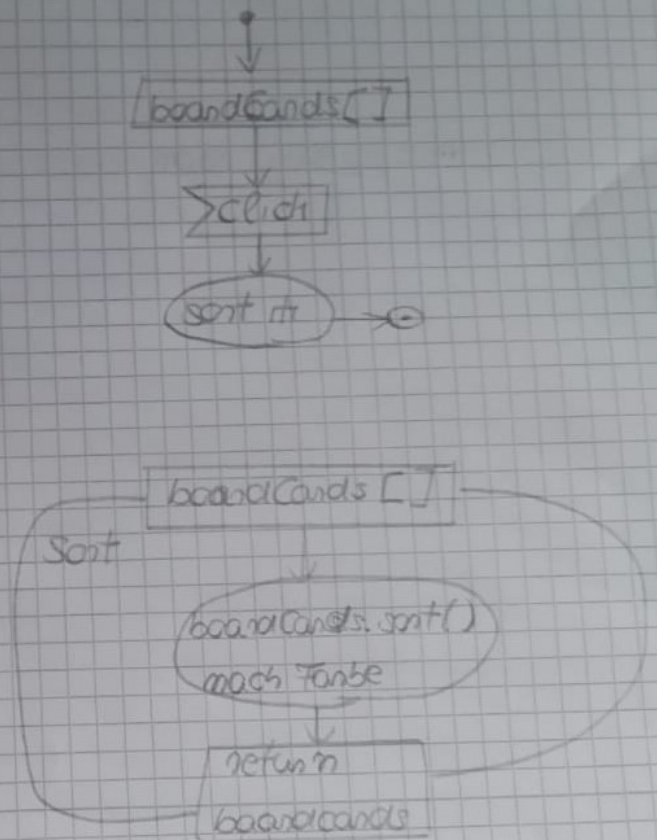 boardCards[]
click
sort
boardCards []
Sort
boardCards.sort()
nach Farbe
return
boardcards